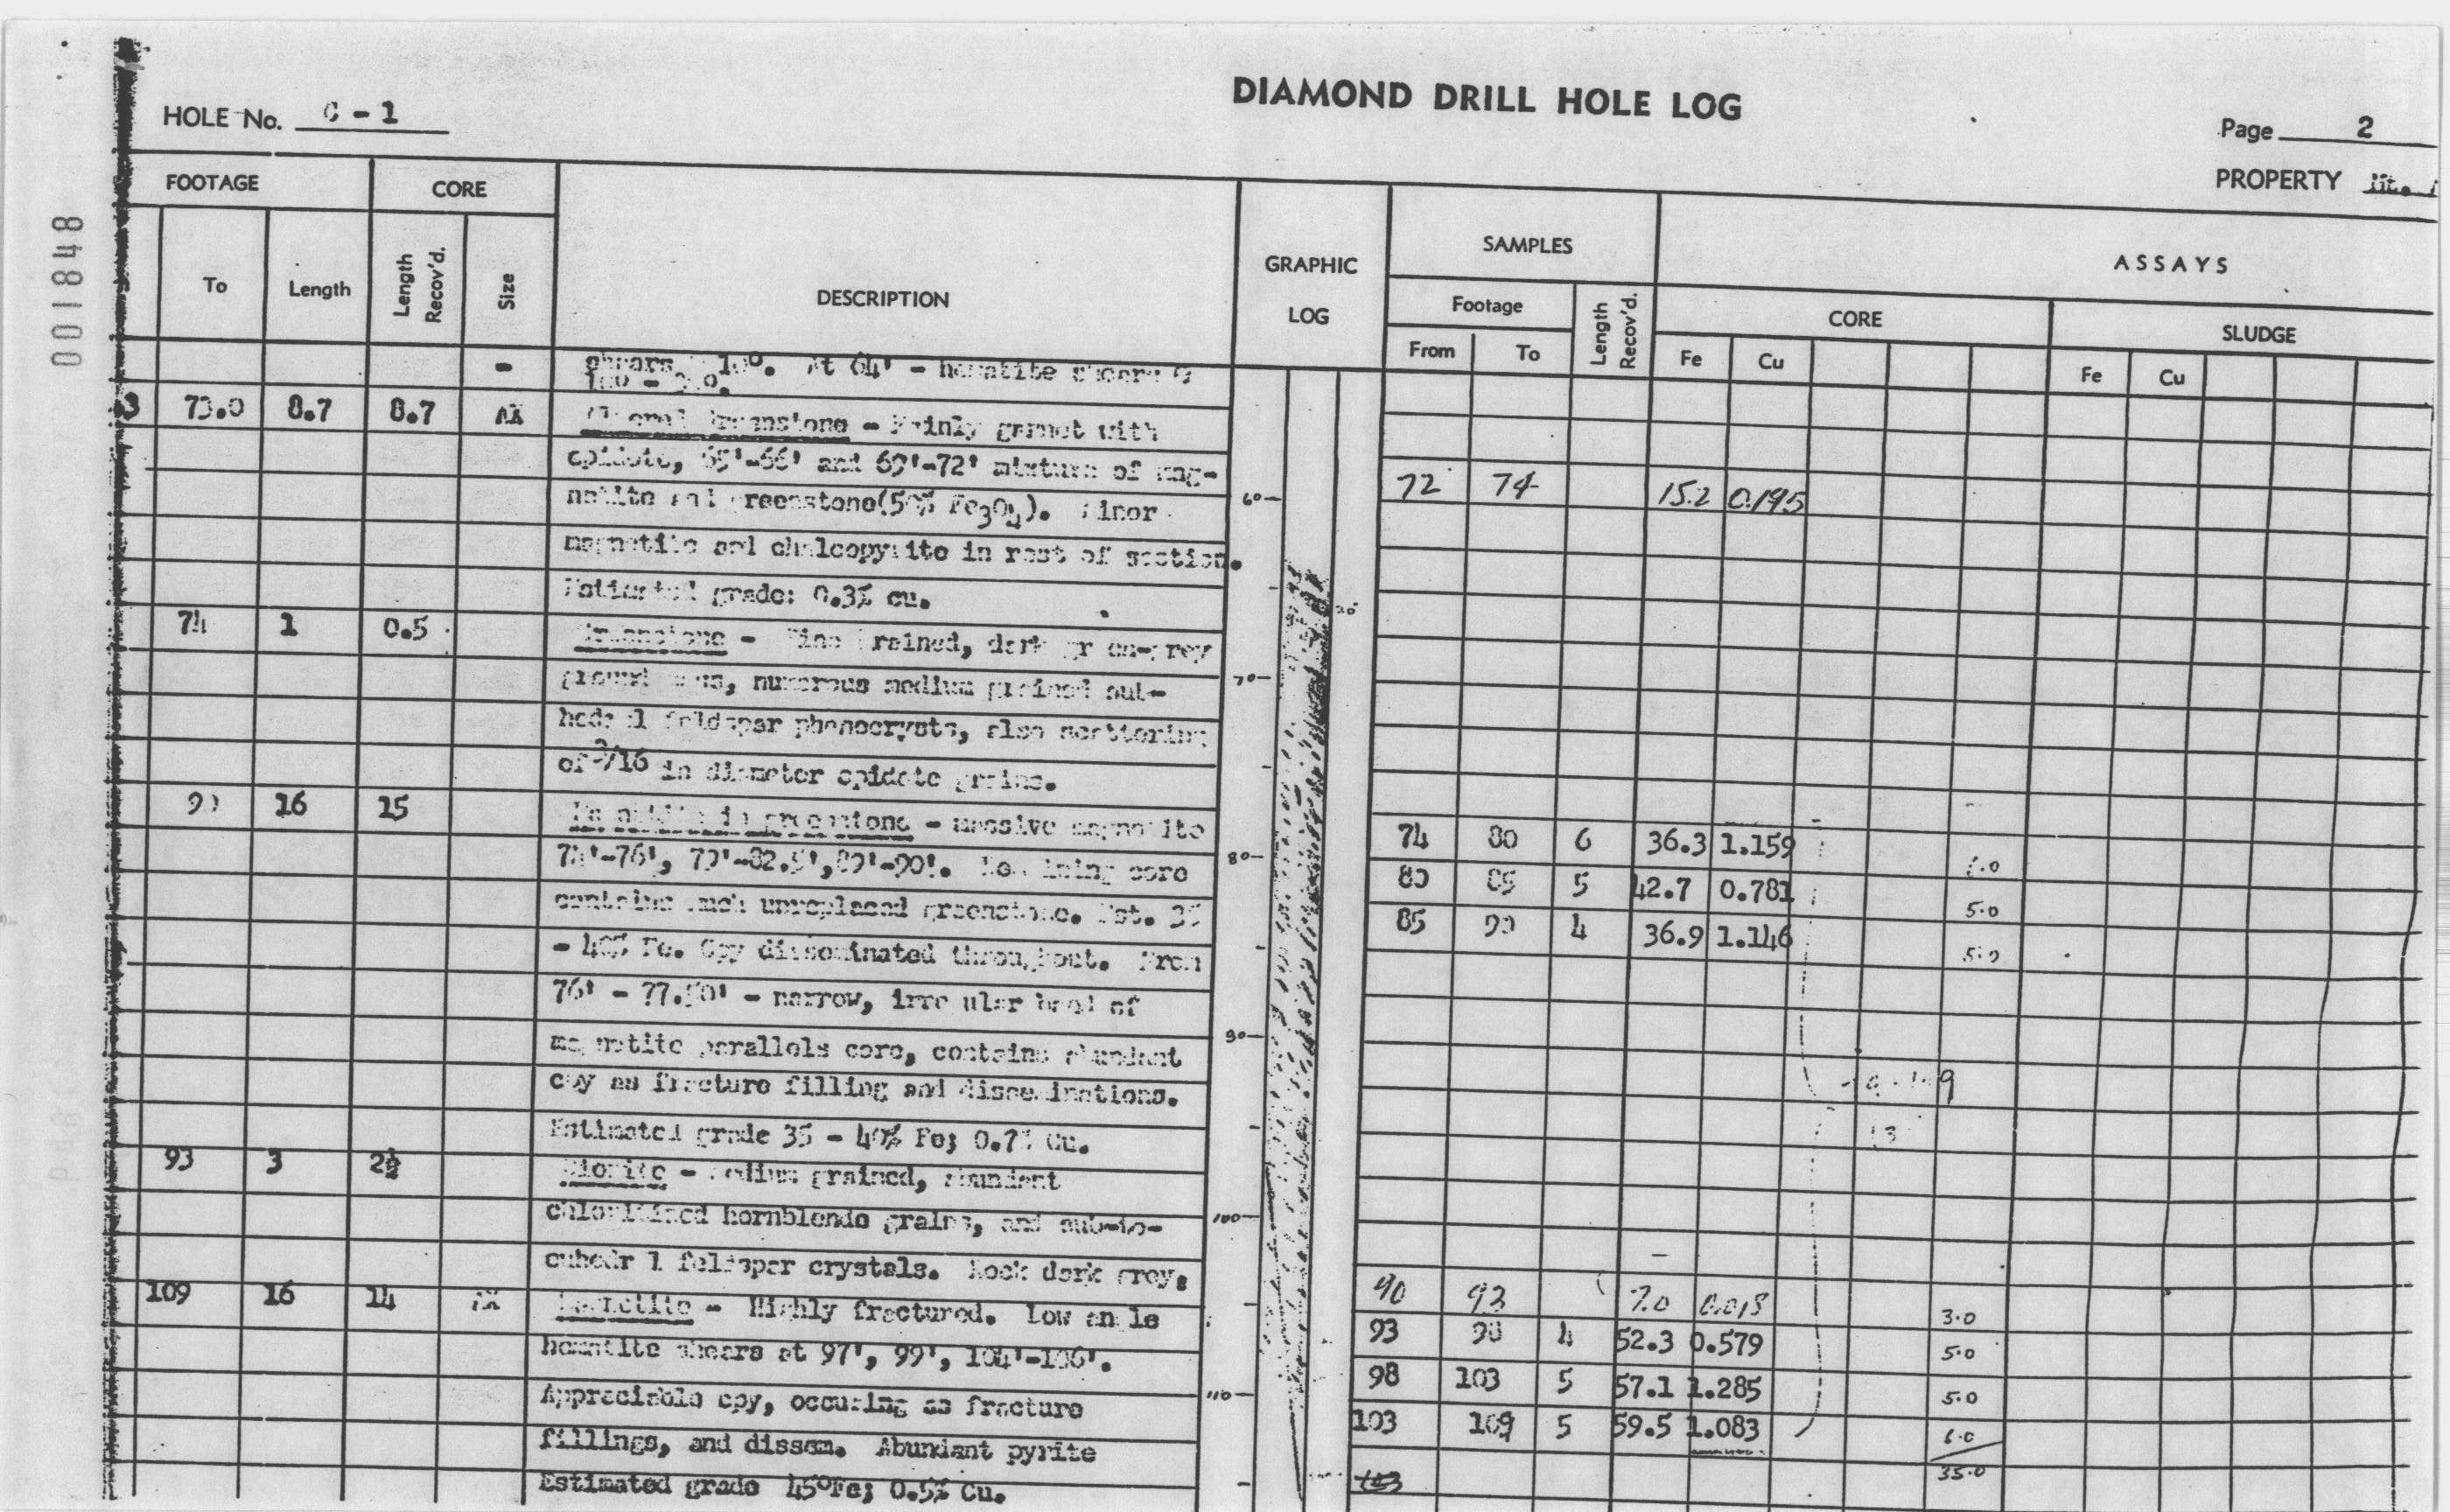 DIAMOND DRILL HOLE LOG
HOLE No. C - 1
Page 2
PROPERTY Mt.
001848
FOOTAGE CORE
To Length Length Recov'd. Size
DESCRIPTION
GRAPHIC LOG
SAMPLES
Footage
From To
Length Recov'd.
ASSAYS
CORE
Fe Cu
SLUDGE
Fe Cu
- shears 10°. At 64' - hematite shears
3 73.0 8.7 8.7 AX Greenstone - Mainly garnet with
epidote, 65'-66' and 69'-72' mixture of mag-
netite and greenstone(50% Fe3O4). Minor
72 74 15.2 0.195
magnetite and chalcopyrite in rest of section.
Estimated grade: 0.3% cu.
74 1 0.5 Greenstone - Fine grained, dark green-grey
ground mass, numerous medium grained sub-
hedral feldspar phenocrysts, also scattering
of 3/16 in diameter epidote grains.
90 16 15 Magnetite in greenstone - massive magnetite
74'-76', 79'-82.5',89'-90'. Remaining core
contains much unreplaced greenstone. Est. 35
- 40% Fe. Cpy disseminated throughout. From
76' - 77.50' - narrow, irregular band of
magnetite parallels core, contains abundant
cpy as fracture filling and disseminations.
Estimated grade 35 - 40% Fe; 0.7% Cu.
74 80 6 36.3 1.159 6.0
80 85 5 42.7 0.781 5.0
85 90 4 36.9 1.146 5.0
93 3 2½ Diorite - Medium grained, abundant
chloritized hornblende grains, and sub-to-
euhedral feldspar crystals. Rock dark grey.
109 16 14 AX Magnetite - Highly fractured. Low angle
hematite shears at 97', 99', 104'-106'.
Appreciable cpy, occuring as fracture
fillings, and dissem. Abundant pyrite
Estimated grade 45% Fe; 0.5% Cu.
90 93 7.0 0.018 3.0
93 98 4 52.3 0.579 5.0
98 103 5 57.1 1.285 5.0
103 109 5 59.5 1.083 6.0
103
35.0
60
70
80
90
100
110